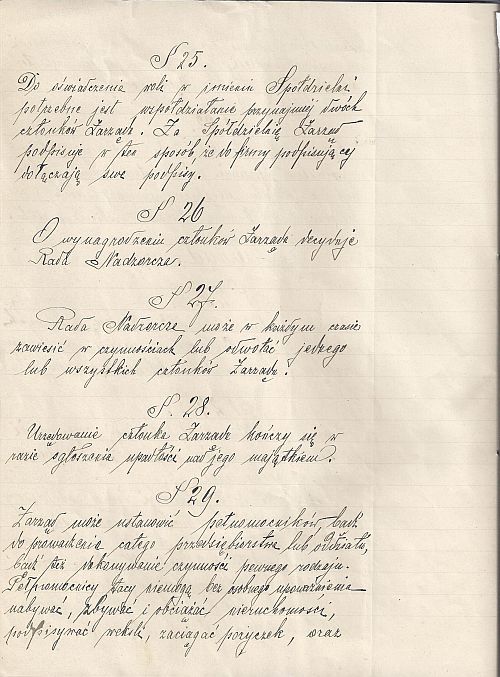 § 25.
Do oświadczenia woli w imieniu Spółdzielni
potrzebne jest współdziałanie przynajmniej dwóch
członków Zarządu. Za Spółdzielnię Zarząd
podpisuje w ten sposób że do firmy podpisujący
dołączają swe podpisy.
§ 26
O wynagrodzeniu członków Zarządu decyduje
Rada Nadzorcza.
§ 27.
Rada Nadzorcza może w każdym czasie
zawiesić w czynnościach lub odwołać jednego
lub wszystkich członków Zarządu.
§. 28.
Urzędowanie członka Zarządu kończy się w
razie ogłoszenia upadłości nad jego majątkiem.
§ 29.
Zarząd może ustanowić pełnomocników, bądź
do prowadzenia całego przedsiębiorstwa lub oddziału,
bądź też dokonywanie czynności pewnego rodzaju.
Pełnomocnicy tacy niemogą bez osobnego upoważnienia
nabywać, zbywać i obciążać nieruchomości,
podpisywać weksli, zaciągać pożyczek, oraz